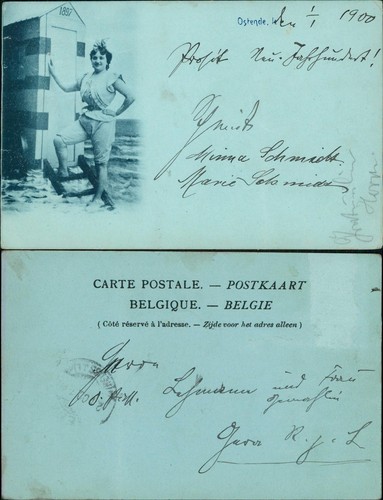 1887
Ostende. den 1/1 1900
Prosit Neu-Jahrhundert!
Minna Schmidt
Marie Schmidt
CARTE POSTALE. — POSTKAART
BELGIQUE. — BELGIE
( Côté réservé à l'adresse. — Zijde voor het adres alleen )
Herrn
Lehmann und Frau
Gemahlin
Gera R. j. L